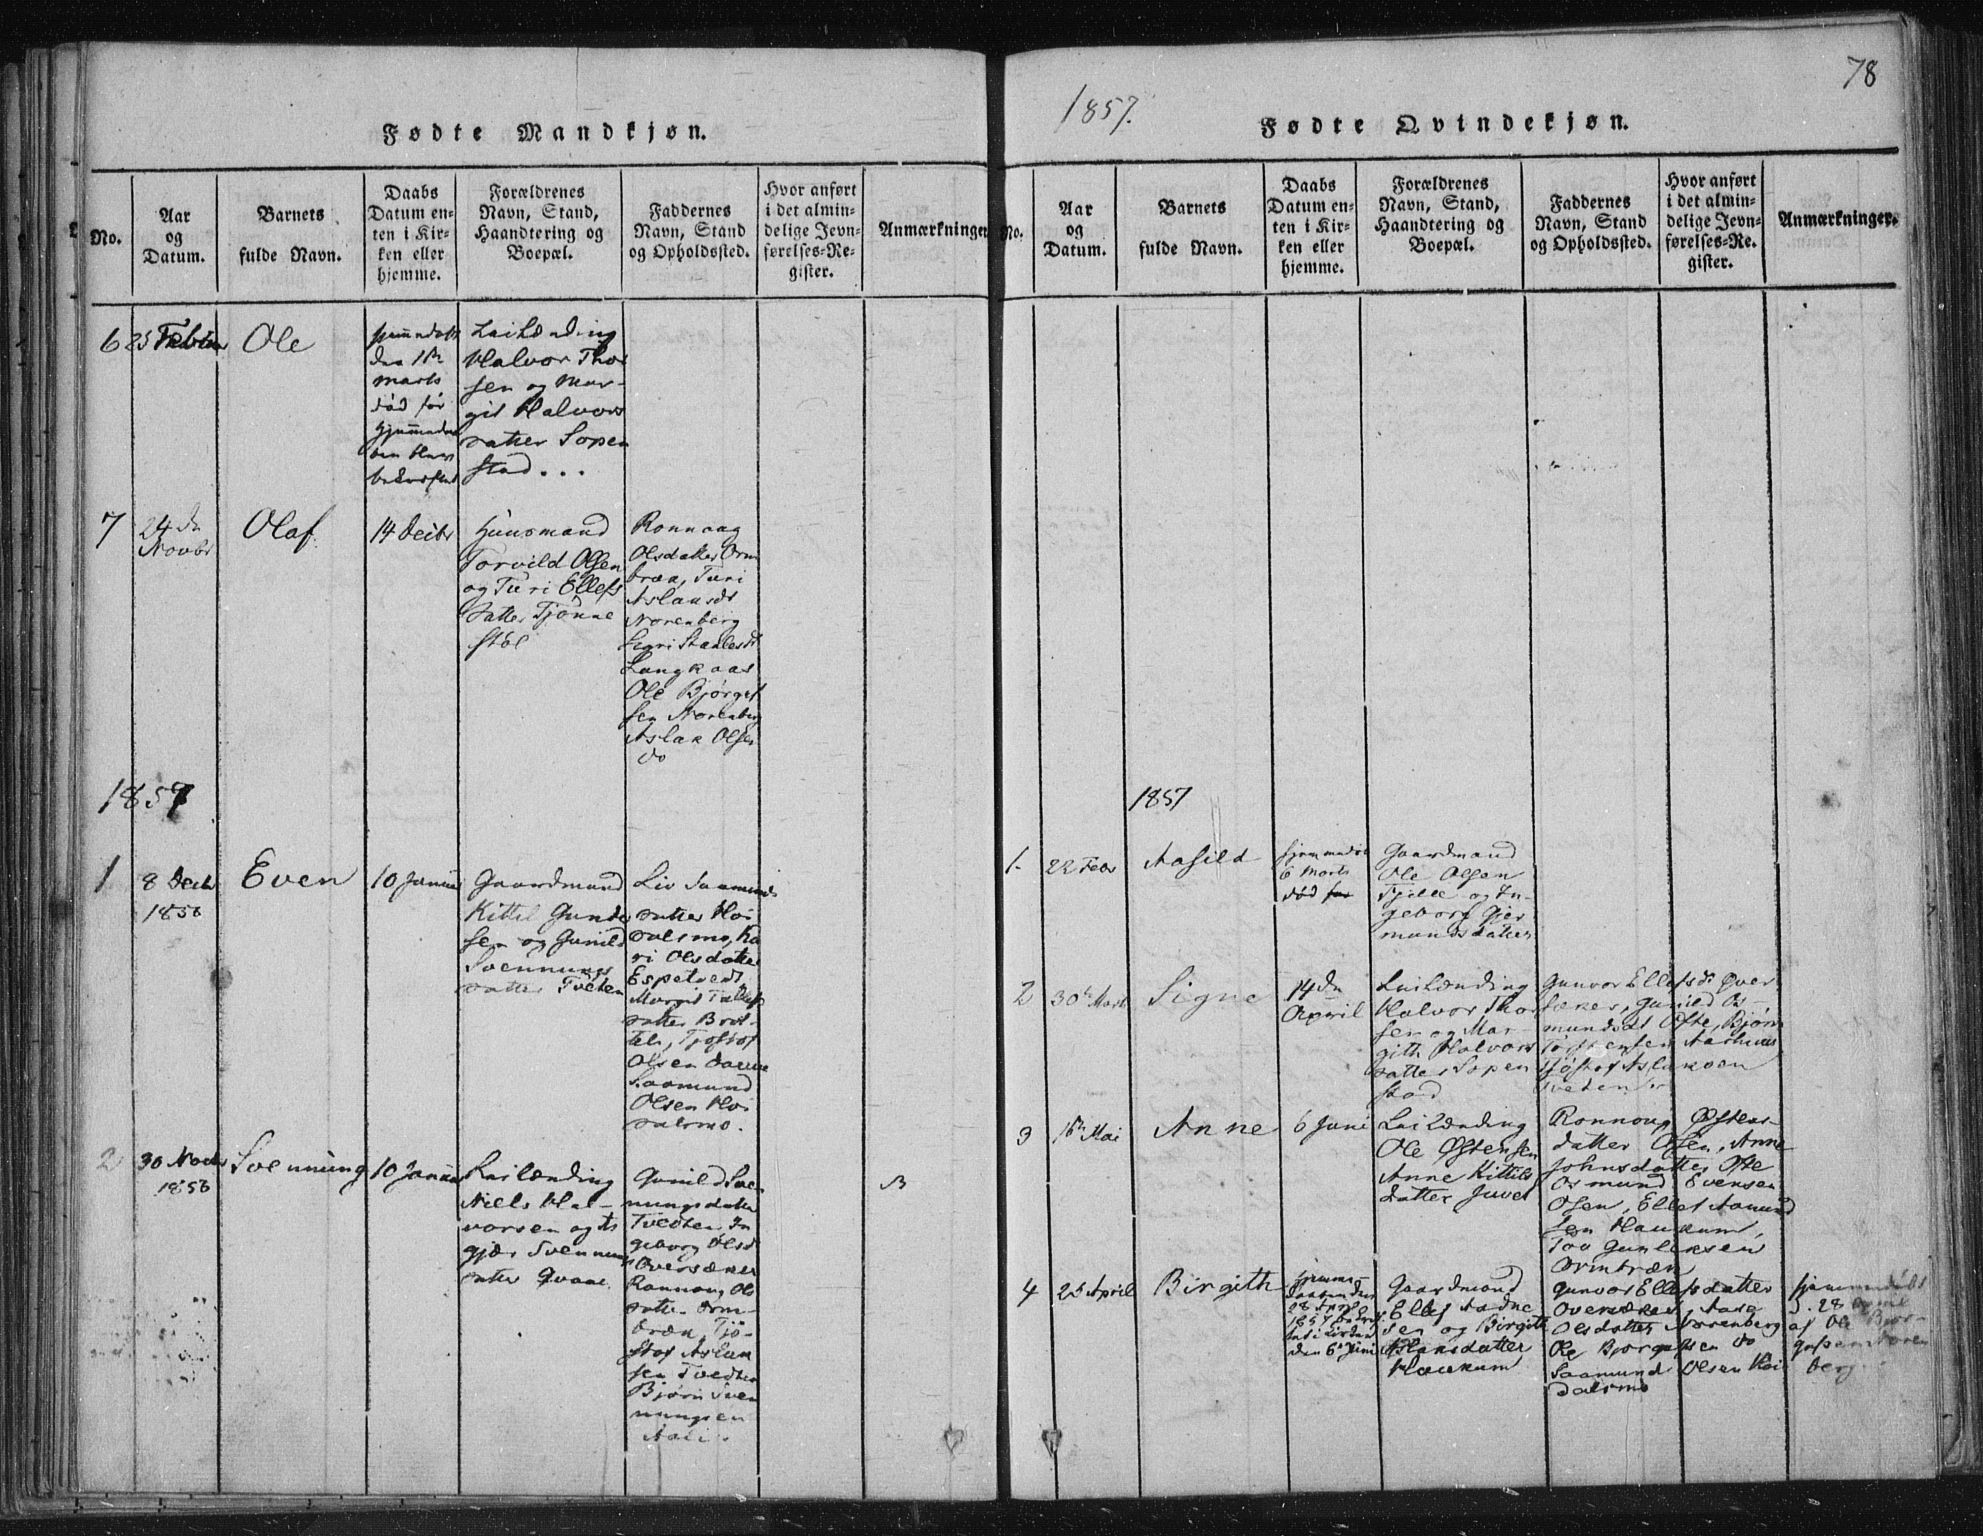 78
1857.
Fødte Mandkjøn.
No.
Aar
og
Datum.
Barnets
fulde Navn.
Daabs
Datum en-
ten i Kir-
ken eller
hjemme.
Forældrenes
Navn, Stand,
Haandtering og
Boepæl.
Faddernes
Navn, Stand
og Opholdssted.
Hvor anført
i det almin-
delige Jevn-
førelses-Re-
gister.
Anmærkninger
6
25 Februar
Ole
hjemmedøbt
den 1ste
marts
død før
hjemmedaa
ben blev
bekræftet
Leilænding
Halvor Thor
sen og Mar-
git Halvors
datter Sopen
stad...
7
24 de
Novbr
Olaf
14 Decbr
Huusmand
Torvild Olsen
og Turi Ellefs
datter Tjønne
støl
Ronnaug
Olsdatter Orm
bræn, Turi
Aslaksdt
Norenberg
Langkaas
Ole Bjørgef
sen Norenberg
Aslak Olsen
do
1857
1
8 Decbr
1856
Even
10 Januar
Gaardmand
Kittil Gunder
sen og Gunild
Svennungs
datter Tveten
Liv Saamunds
datter Høi
dalsmo, Ka
ri Olsdatter
Espetvedt
Margit Tallefs
datter Brot-
Olsen
Saamund
Olsen Høi
dalsmo.
2
30 Novbr
1856
Svennung
10 Januar
Leilænding
Niels Hal-
vorsen og As
gjær Svennungs
datter Qvaane
Gunild Sven
nungsdatter
Tvedten In
geborg Olsd
Oversaker
Ronnaug Ols
datter Orm-
bræn, Tjø-
stof Aslak
sen Tvedten
Bjørn Sven
nungsen
B
Fødte Qvindekjøn.
No.
Aar
og
Datum.
Barnets
fulde Navn.
Daabs
Datum en-
ten i Kir-
ken eller
hjemme.
Forældrenes
Navn, Stand,
Haandtering og
Boepæl.
Faddernes
Navn, Stand
og Opholdssted.
Hvor anført
i det almin-
delige Jevn-
førelses-Re-
gister.
Anmærkninger.
1857
1.
22 Febr
Aasild
hjemmedøbt
6 Marts
død for
Gaardmand
Ole Olsen
og In-
geborg Gjer
mundsdatter
2
30te Marts
Signe
14 de
April
Leilænding
Halvor Thor
sen og Mar-
gith Halvors
datter Sopen
stad
Gunvor Ellefsdt Over
saker, Gunild Os
mundsdt Ofte, Bjørn
Torstensen Aarhuus
Tjøstof Aslaksen
Tveten
3
16 Mai
Anne
6 Juni
Leilænding
Ole Østensen
Anne Kittils
datter Juvet
Ronnoug Østens
datter Ofsen, Anne
Johnsdatter Ofte
Osmund Evensen
Ofsen, Ellef Aamund
sen Haukum,
Tov Gunleksen
Ormbræn
4
25 April
Birgith
hjemme-
døbt den
28 April
1857
den 6te Juni
Gaardmand
Ellef Aadne
sen og Birgith
Aslaksdatter
Haukum
Gunvor Ellefsdatter
Oversaker, Aase
Olsdatter Norenberg
Ole Bjørgufsen do
Saamund Olsen Høi
dalsmo
hjemmedøbt
d. 28 April
af Ole Bjør-
gufsen Noren
berg